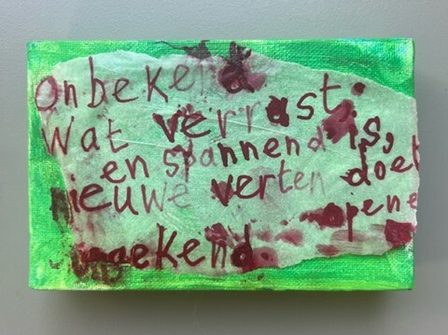 Onbekend
Wat verrast
en spannend is,
nieuwe verten doet
opene